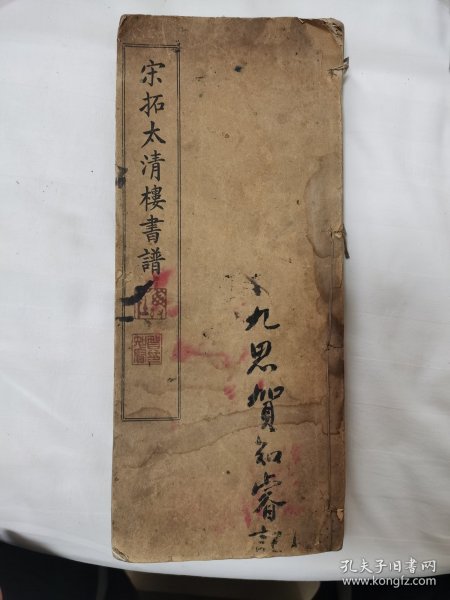 宋拓太清樓書譜
九思賀知睿記
孔夫子旧书网
www.kongfz.com